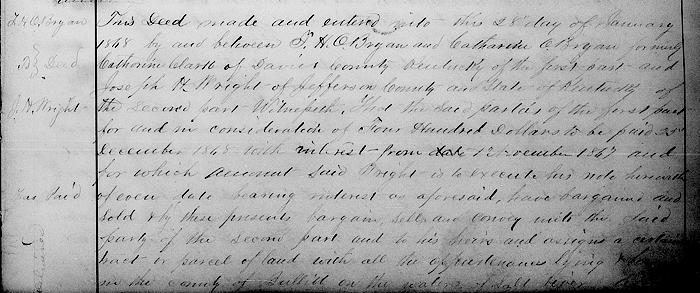 F. H. C. Bryan
B} Deed
J. H. Wright
Tax Pai'd
This Deed made and entered into this 28 day of January
1868 by and between F. H. C. Bryan and Catharine C. Bryan formerly
Catharine Clark of Daviess County Kentucky of the first part and
Joseph H. Wright of Jefferson County and State of Kentucky of
the Second part Witnesseth, That the said parties of the first part
for and in consideration of Four Hundred Dollars to be paid 25th
December 1868 with interest from date 12 November 1867 and
for which amount said Wright is to execute his note herewith
of even date bearing interest as aforesaid, have bargained and
sold & by these presents bargain, sell and convey unto the said
party of the Second part and to his heirs and assigns a certain
tract or parcel of land with all the appurtenances lying &
in the county of Bullitt on the waters of Salt River